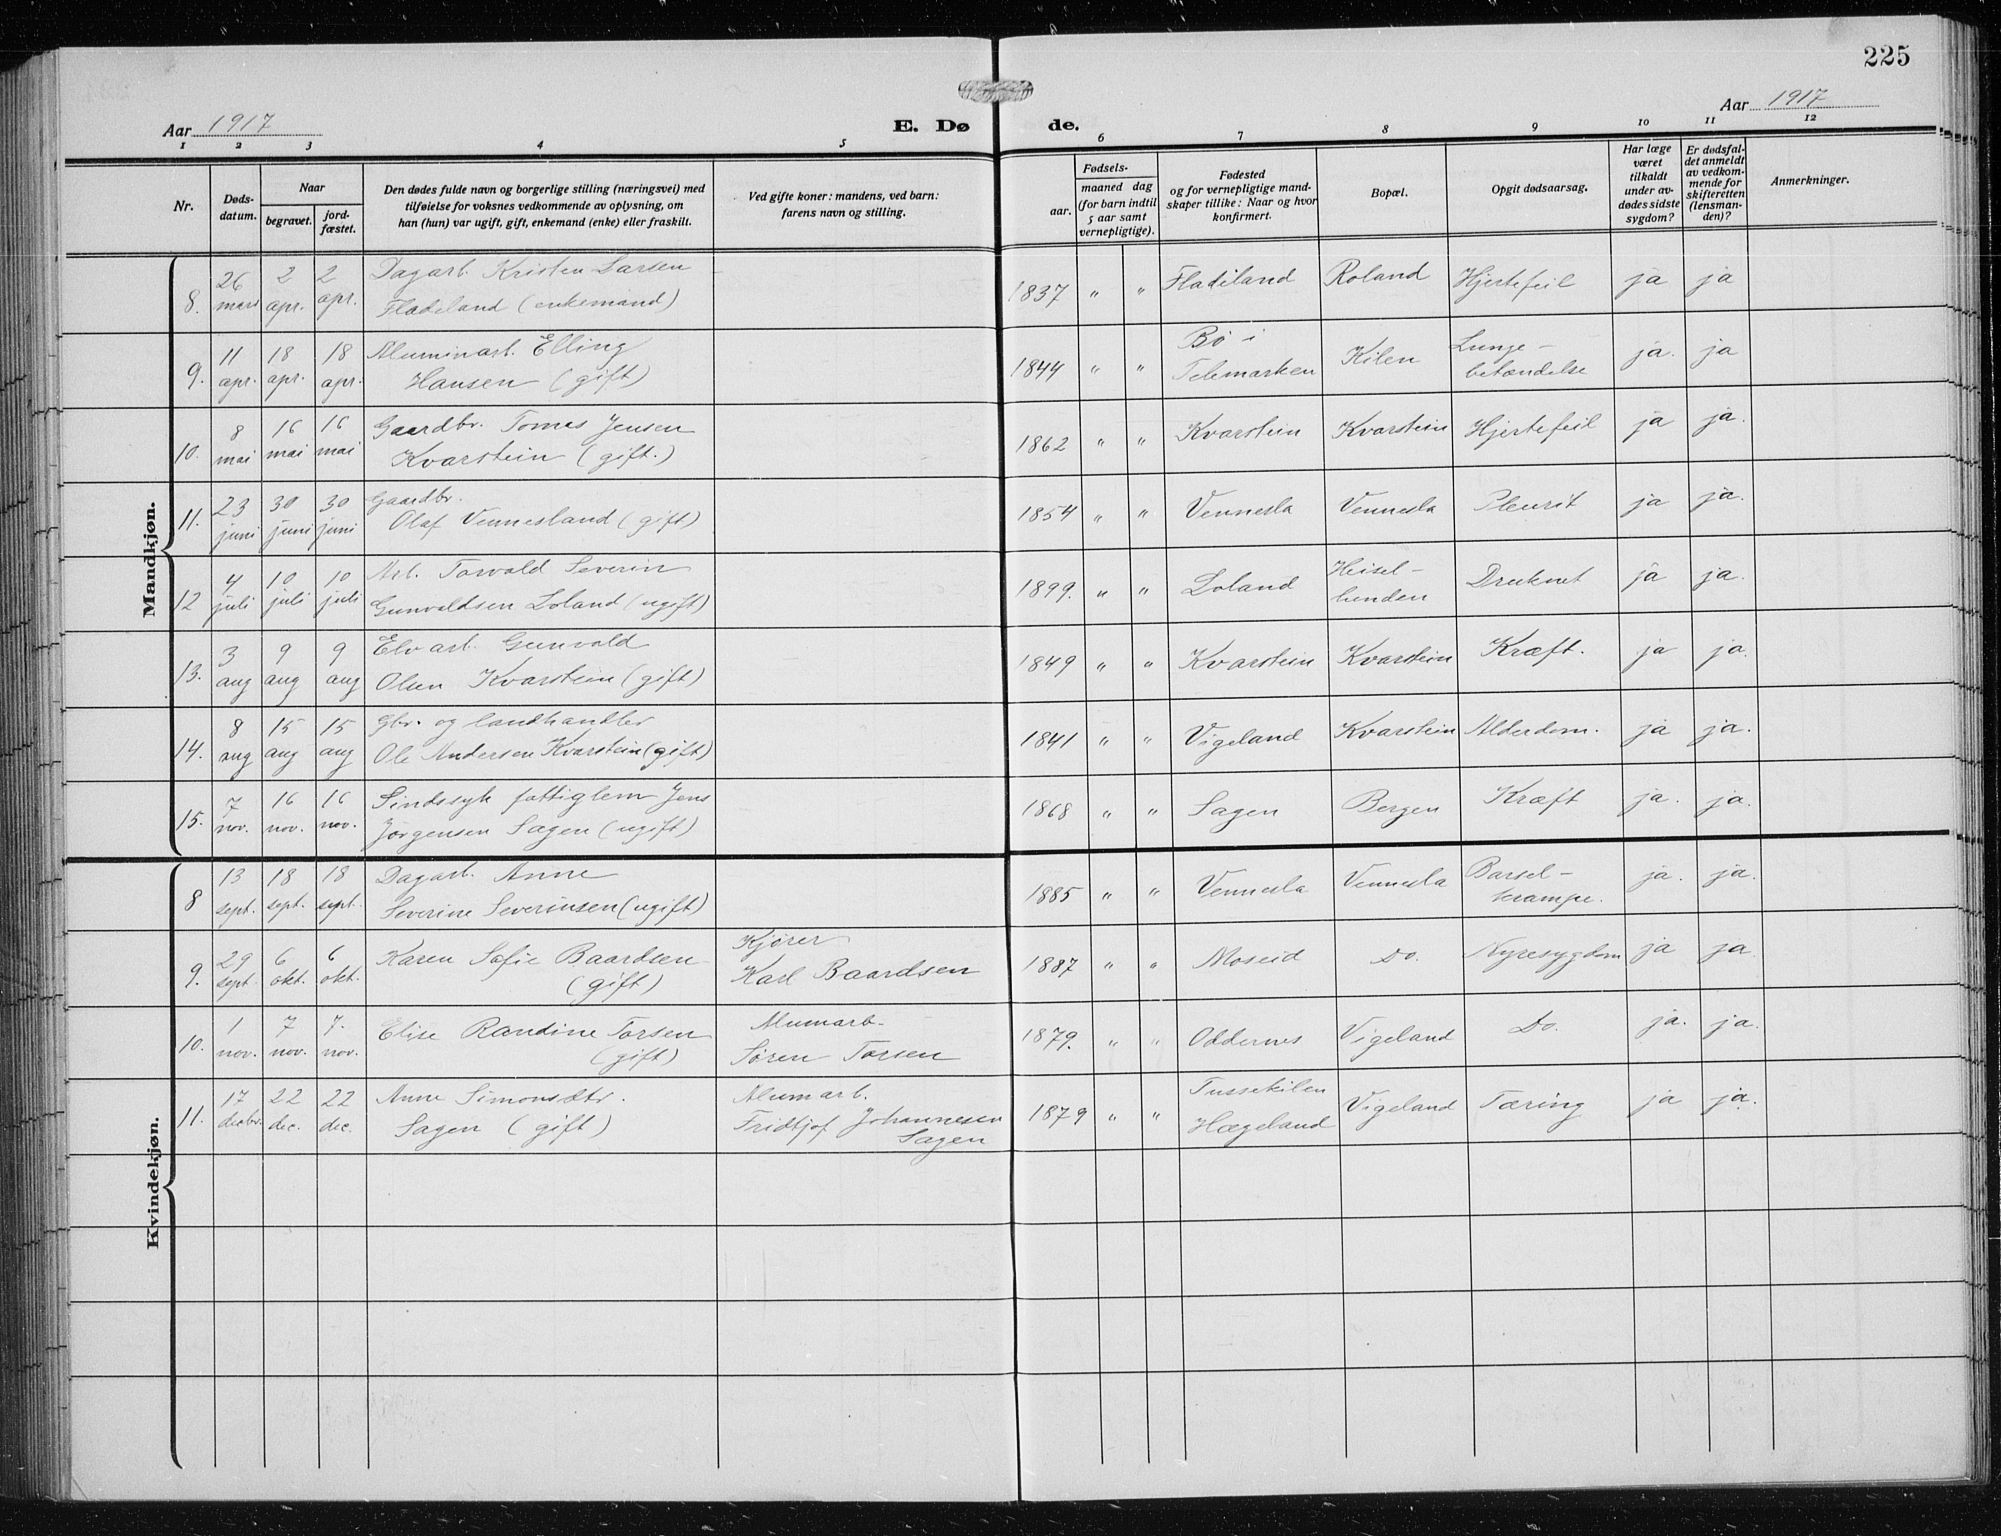 225
Aar 1917
E. Dø de.
Aar 1917
1 2 3 4 5 6 7 8 9 10 11 12
Nr.
Døds-
datum.
Naar
begravet.
jord-
fæstet.
Den dødes fulde navn og borgerlige stilling (næringsvei) med
tilføielse for voksnes vedkommende av oplysning, om
han (hun) var ugift, gift, enkemand (enke) eller fraskilt.
Ved gifte koner: mandens, ved barn:
farens navn og stilling.
Fødsels-
aar.
maaned dag
(for barn indtil
5 aar samt
vernepligtige).
Fødested
og for vernepligtige mand-
skaper tillike: Naar og hvor
konfirmert.
Bopæl.
Opgit dødsaarsag.
Har læge
været
tilkaldt
under av-
dødes sidste
sygdom?
Er dødsfal-
det anmeldt
av vedkom-
mende for
skifteretten
(lensman-
den)?
Anmerkninger.
Mandkjøn.
26 2 2 Dagarb. Kristen Larsen
8. mars apr. apr. Fladeland (enkemand) 1837 " " Fladeland Roland Hjertefeil ja ja
11 18 18 Aluminarb. Elling Bø i Lunge-
9. apr. apr. apr. Hansen (gift) 1844 " " Telemarken Kilen betændelse ja. ja
8 16 16 Gaardbr. Tomas Jensen
10. mai mai mai Kvarstein (gift.) 1862 " " Kvarstein Kvarstein Hjertefeil ja ja.
23 30 30 Gaardbr.
11. juni juni juni Olaf Vennesland (gift) 1854 " " Vennesla Vennesla Pleurit ja ja.
4 10 10 Arb. Torvald Severin Heisel-
12 juli juli juli Gunvaldsen Loland (ugift) 1899. " " Loland henden Druknet ja ja.
3 9 9 Elvarb. Gunvald
13. aug aug aug Olsen Kvarstein (gift) 1849 " " Kvarstein Kvarstein Kræft. ja ja.
8 15 15 Gbr. og landhandler
14. aug aug aug Ole Andersen Kvarstein (gift) 1841 " " Vigeland Kvarstein Alderdom. ja ja.
7 16 16 Sindssyk fattiglem Jens
15. nov. nov. nov. Jørgensen Sagen (ugift) 1868 " " Sagen Bergen Kræft ja. ja.
Kvindekjøn.
13 18 18 Dagarb. Anne Barsel-
8 sept. sept. sept. Severine Severinsen (ugift) 1885 " " Vennesla Vennesla krampe. ja. ja.
29 6 6 Karen Sofie Baardsen Kjører
9. sept. okt. okt. (gift) Karl Baardsen 1887 " " Moseid Do. Nyresygdom ja ja.
1 7 7. Elise Randine Torsen Alumarb.
10. nov. nov. nov. (gift) Søren Torsen 1879. " " Oddernes Vigeland Do. ja. ja.
17 22 22 Anne Simonsdtr. Alumarb. Tussekilen
11. decbr. dec. dec. Sagen (gift) Fridtjof Johannesen 1879 " " Hægeland Vigeland Tæring ja ja.
Sagen